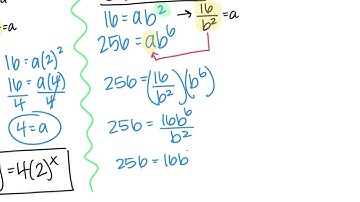 =a
16 = a(2)²
16 = a(4)
4 4
4 = a
y = 4(2)ˣ
16 = ab² → 16/b² = a
256 = ab⁶
256 = (16/b²)(b⁶)
256 = 16b⁶/b²
256 = 16b